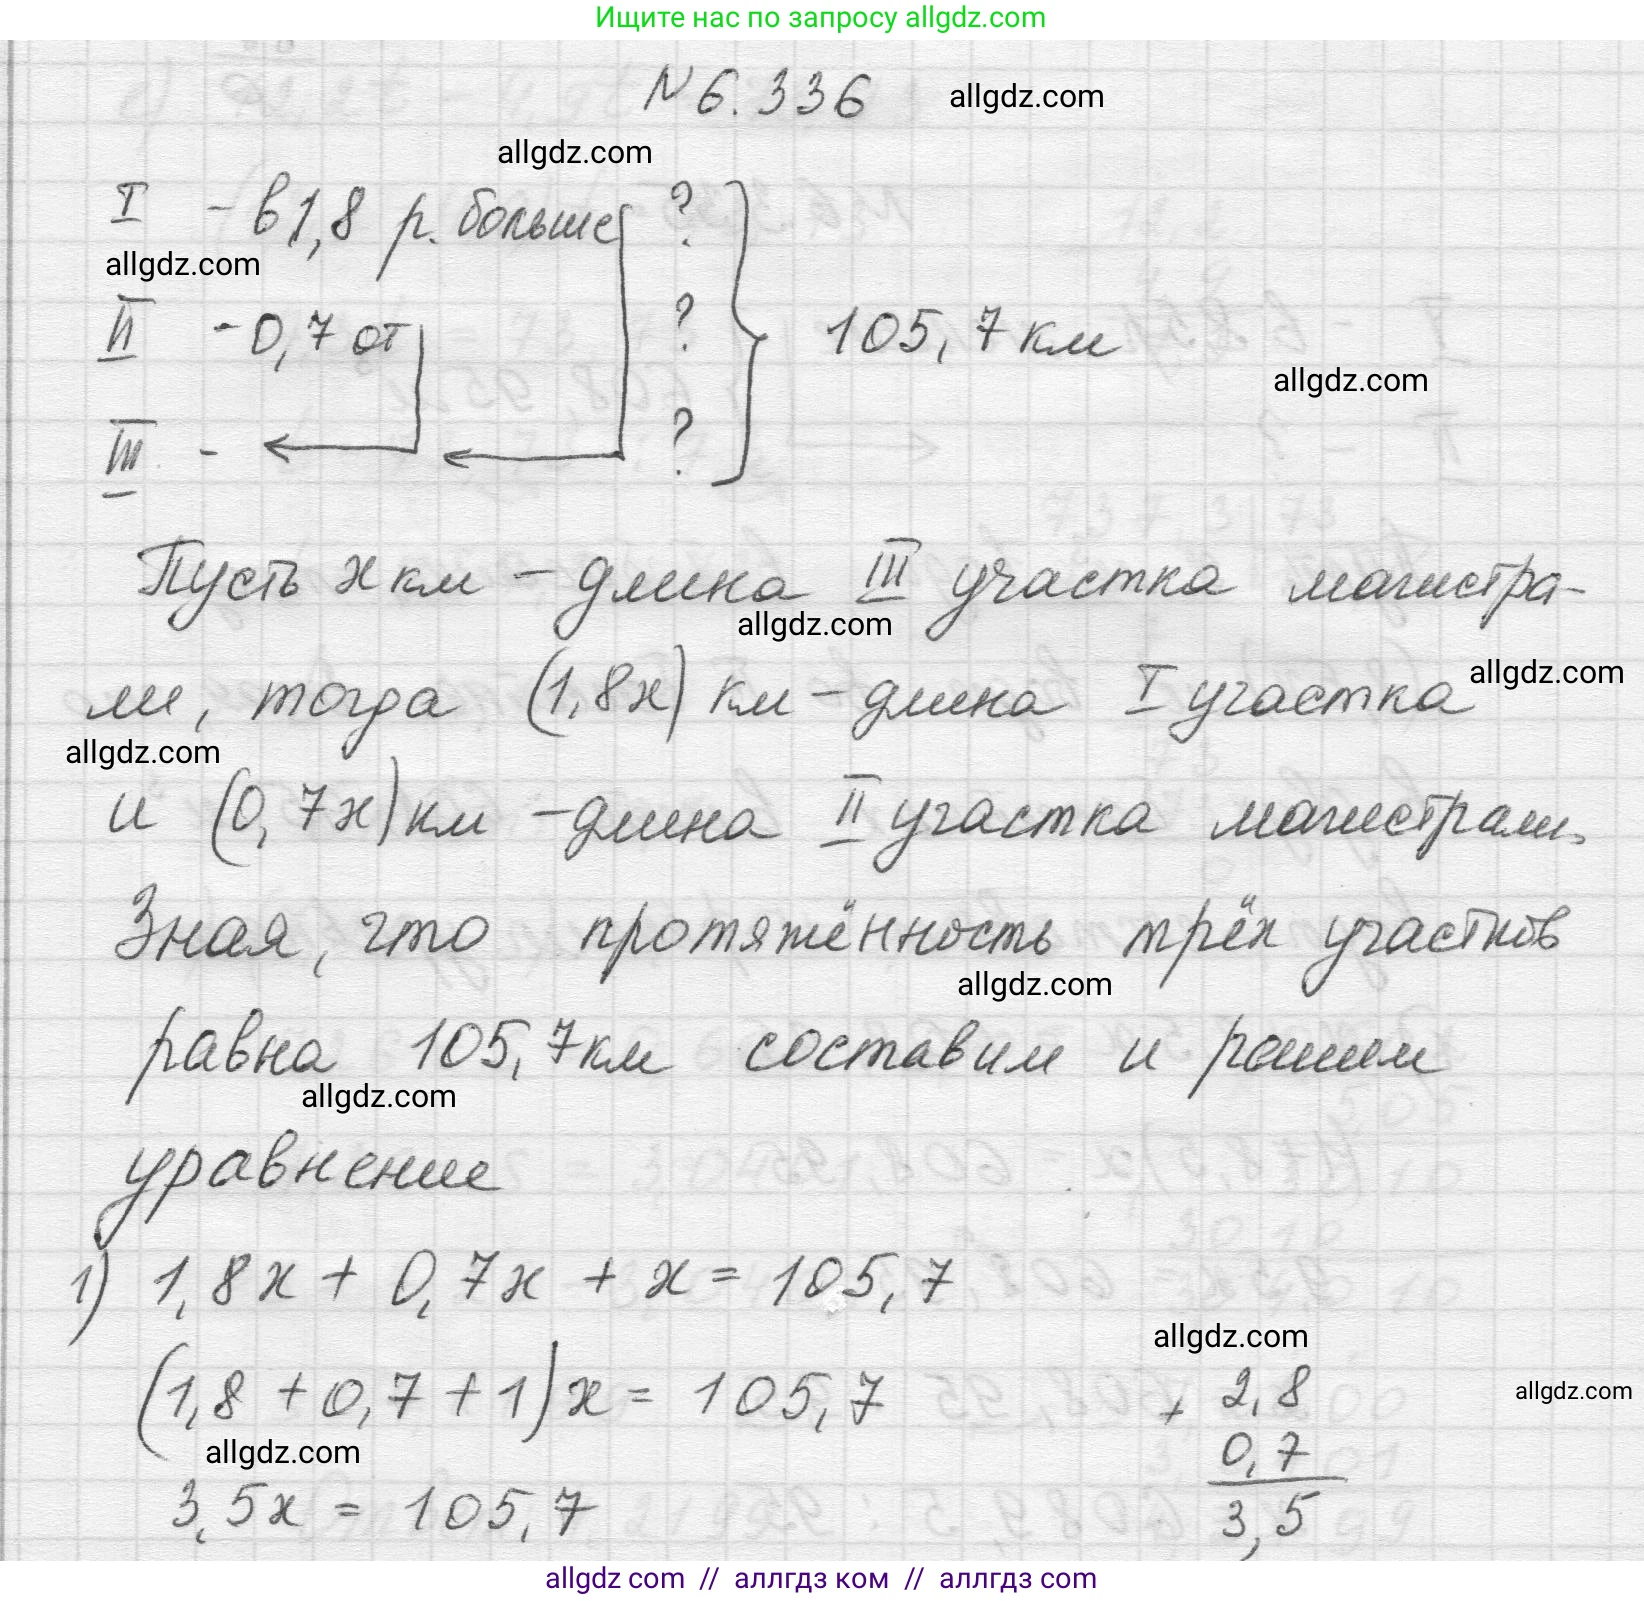 Ищите нас по запросу allgdz.com
N 6.336 allgdz.com
allgdz.com
I - в 1,8 р. больше ?
allgdz.com
II - 0,7 от ? 105,7 км
allgdz.com
III - ?
Пусть x км - длина III участка магистра-
allgdz.com
ли, тогда (1,8x) км - длина I участка allgdz.com
allgdz.com
и (0,7x) км - длина II участка магистрали.
Зная, что протяжённость трёх участков
allgdz.com
равна 105,7 км составим и решим
allgdz.com
уравнение
1) 1,8x + 0,7x + x = 105,7
allgdz.com
(1,8 + 0,7 + 1)x = 105,7 + 2,8 allgdz.com
allgdz.com 0,7
3,5x = 105,7 3,5
allgdz com // аллгдз ком // аллгдз com